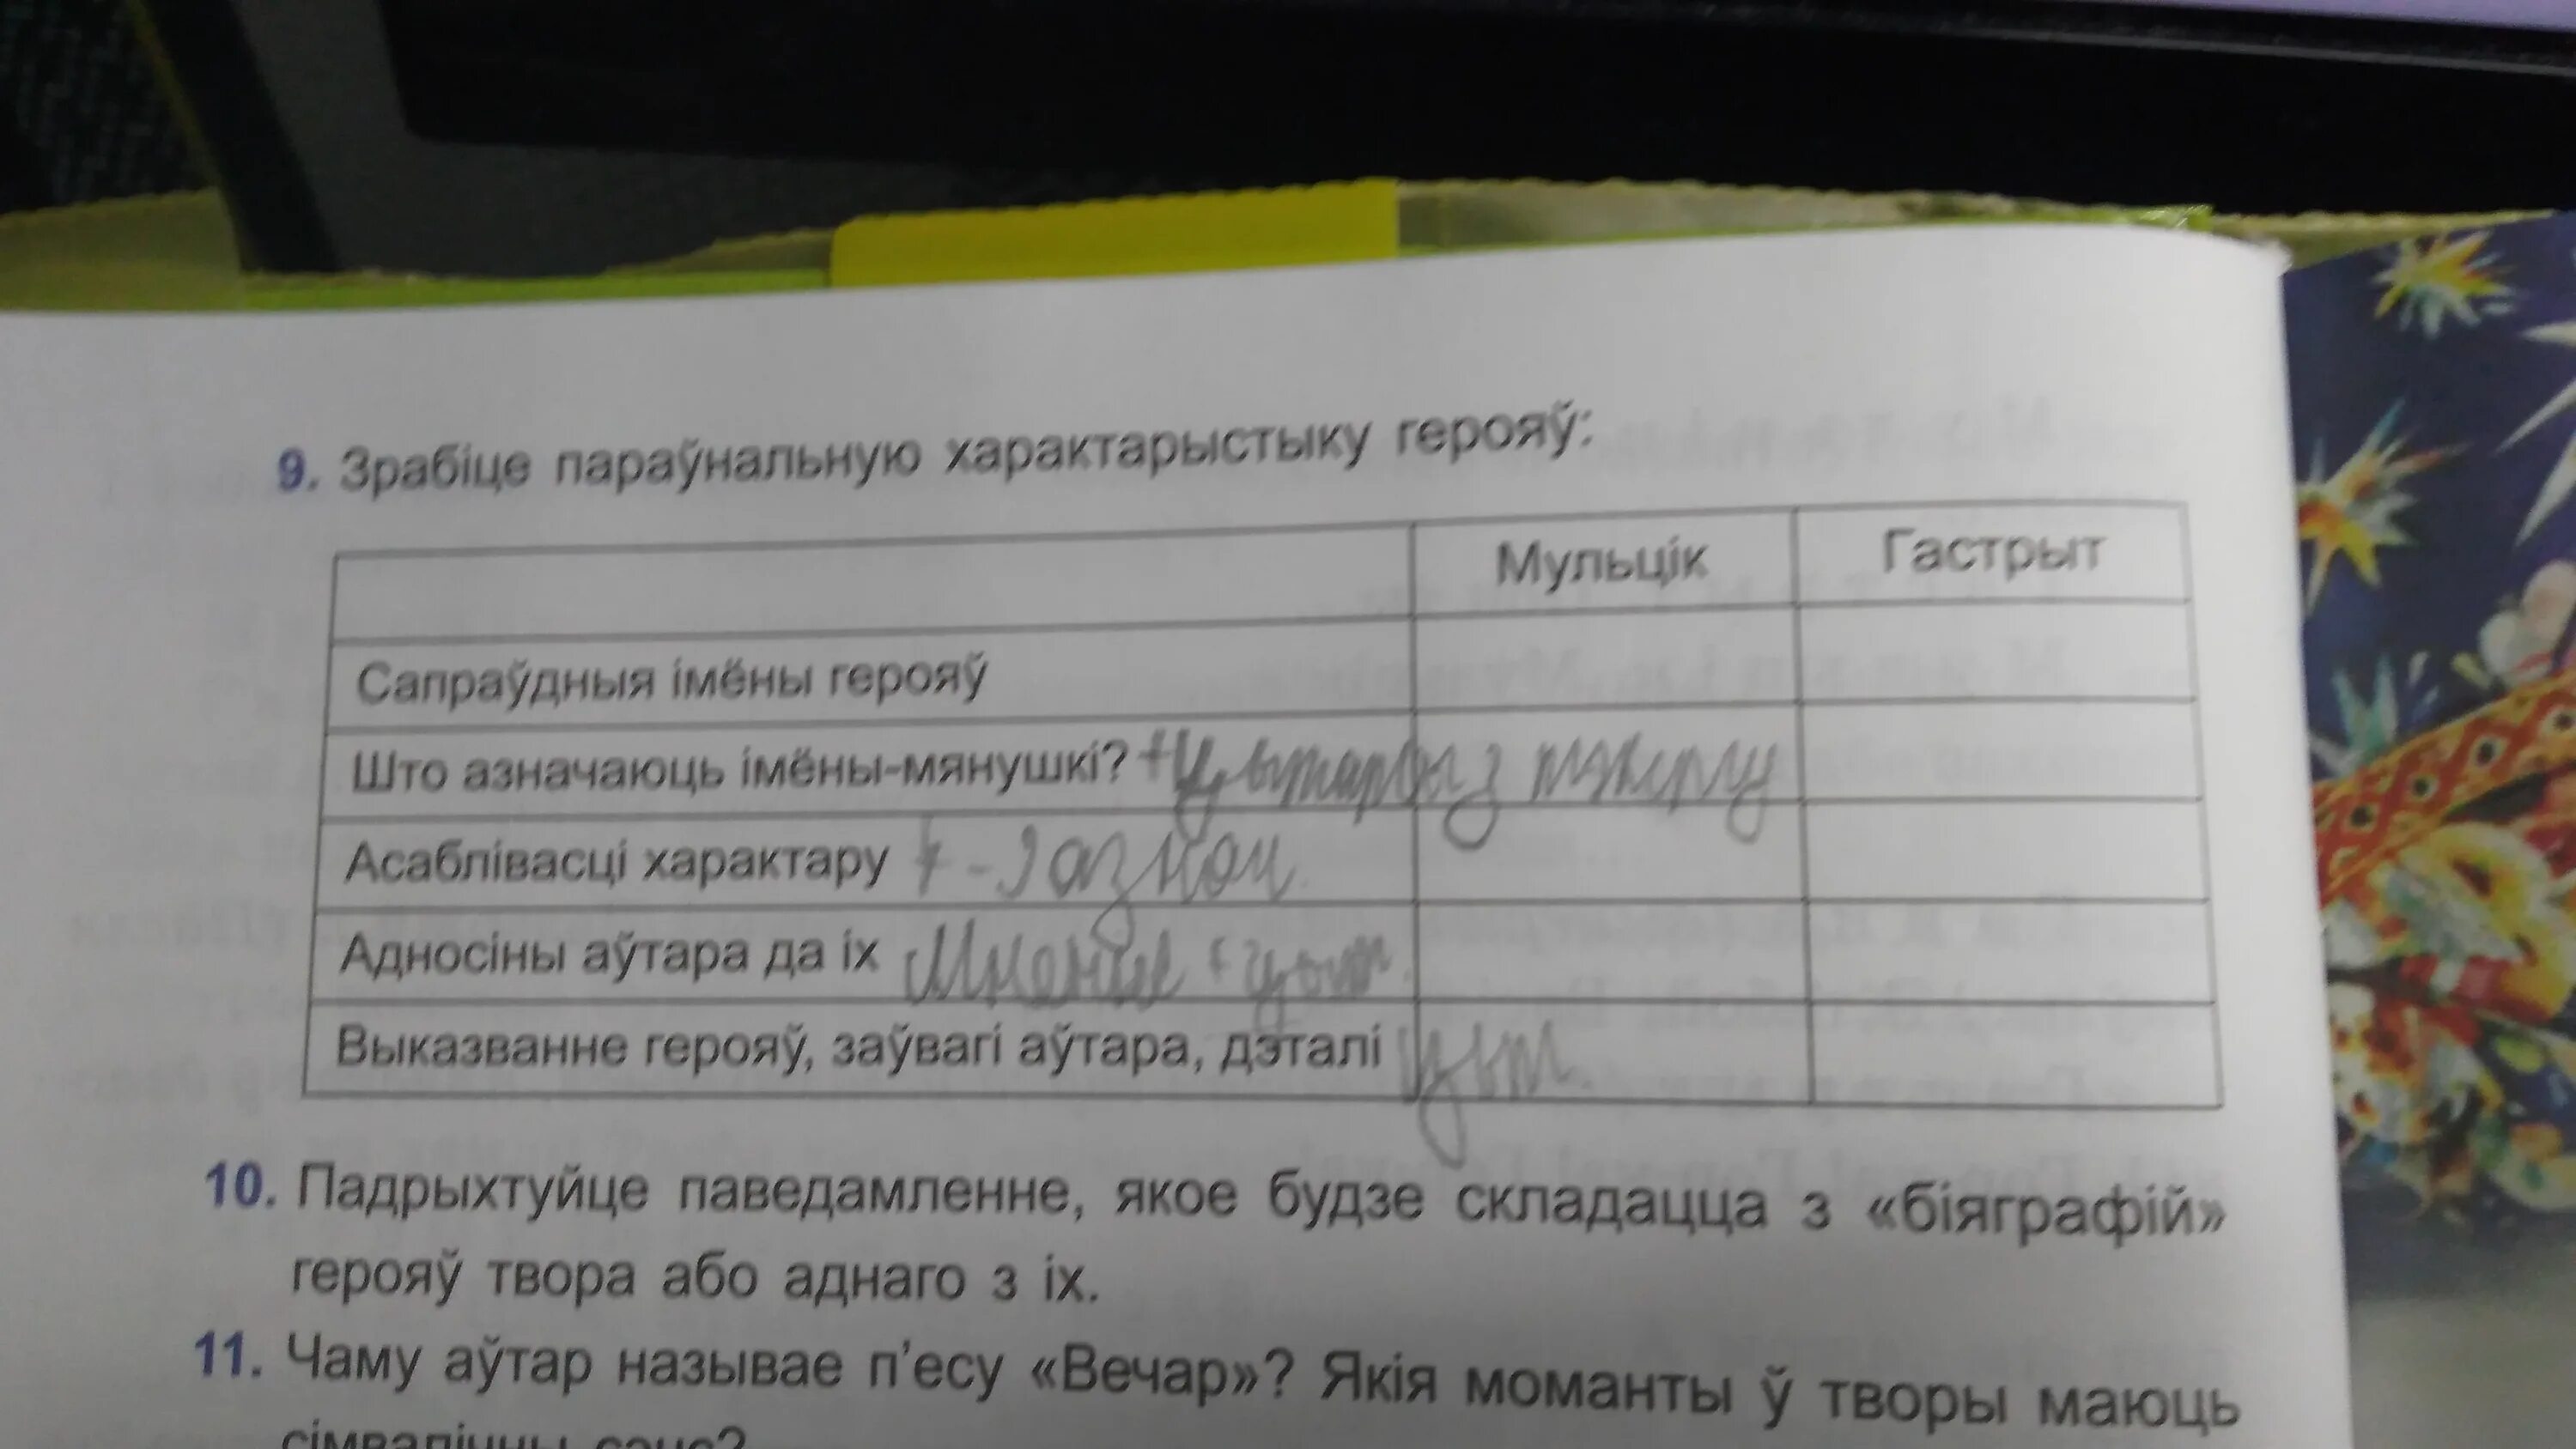 9. Зрабіце параўнальную характарыстыку герояў:
Мульцік Гастрыт
Сапраўдныя імёны герояў
Што азначаюць імёны-мянушкі? + Цытаты з
Асаблівасці характару + -
Адносіны аўтара да іх + цыт.
Выказванне герояў, заўвагі аўтара, дэталі цыт.
10. Падрыхтуйце паведамленне, якое будзе складацца з «біяграфій»
герояў твора або аднаго з іх.
11. Чаму аўтар называе п'есу «Вечар»? Якія моманты ў творы маюць